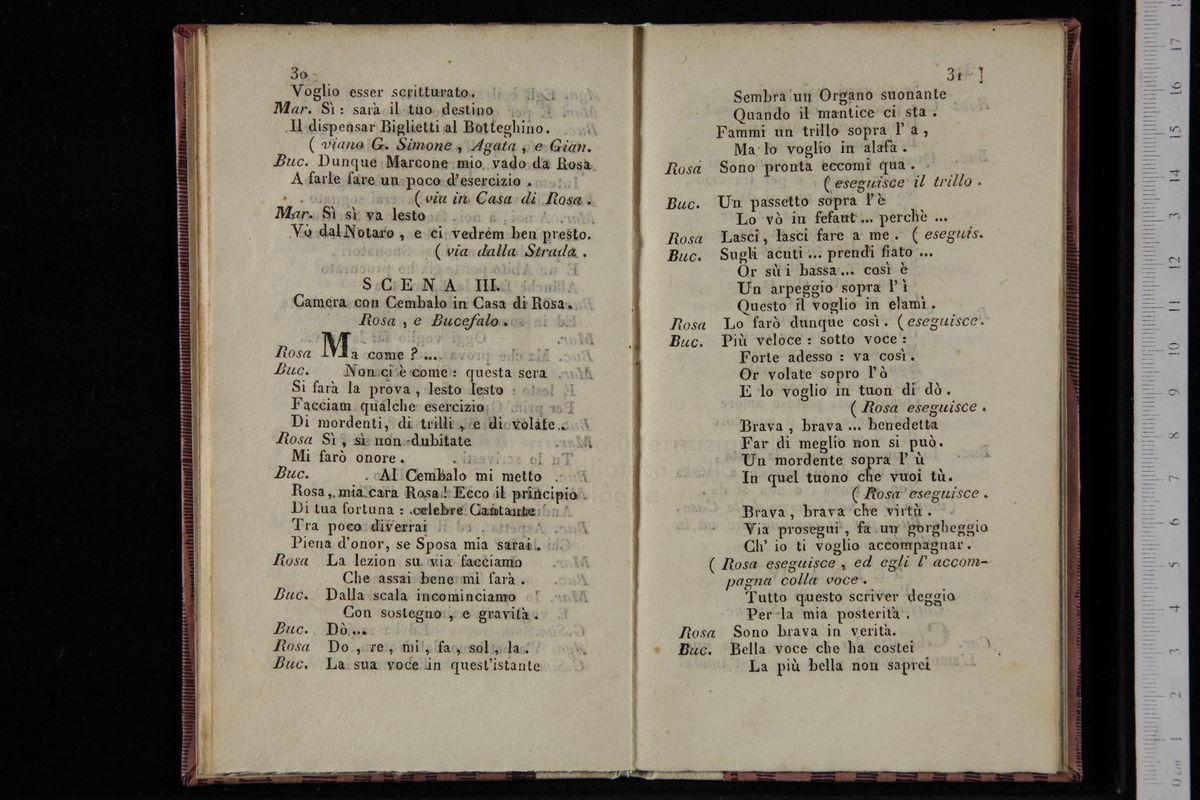 30
Voglio esser scritturato.
Mar. Sì : sarà il tuo destino
Il dispensar Biglietti al Botteghino.
( viano G. Simone , Agata , e Gian.
Buc. Dunque Marcone mio vado da Rosa
A farle fare un poco d'esercizio .
( via in Casa di Rosa .
Mar. Sì sì va lesto
Vò dal Notaro , e ci vedrem ben presto.
( via dalla Strada .
SCENA III.
Camera con Cembalo in Casa di Rosa .
Rosa , e Bucefalo .
Rosa Ma come ? ...
Buc. Non ci è come : questa sera
Si farà la prova , lesto lesto :
Facciam qualche esercizio
Di mordenti, di trilli , e di volate .
Rosa Sì , sì non dubitate
Mi farò onore .
Buc. Al Cembalo mi metto
Rosa , mia cara Rosa ! Ecco il principio
Di tua fortuna : celebre Cantante
Tra poco diverrai
Piena d'onor, se Sposa mia sarai .
Rosa La lezion su via facciamo
Che assai bene mi farà .
Buc. Dalla scala incominciamo
Con sostegno , e gravità .
Buc. Dò ...
Rosa Do , re , mi , fa , sol , la .
Buc. La sua voce in quest'istante
31 ]
Sembra un Organo suonante
Quando il mantice ci sta .
Fammi un trillo sopra l' a ,
Ma lo voglio in alafa .
Rosa Sono pronta eccomi qua .
( eseguisce il trillo .
Buc. Un passetto sopra l'è
Lo vò in fefaut ... perchè ...
Rosa Lasci, lasci fare a me . ( eseguis.
Buc. Sugli acuti ... prendi fiato ...
Or sù i bassa ... così è
Un arpeggio sopra l' ì
Questo il voglio in elamì .
Rosa Lo farò dunque così . ( eseguisce.
Buc. Più veloce : sotto voce :
Forte adesso : va così .
Or volate sopro l'ò
E lo voglio in tuon di dò .
( Rosa eseguisce .
Brava , brava ... benedetta
Far di meglio non si può.
Un mordente sopra l' ù
In quel tuono che vuoi tù.
( Rosa eseguisce .
Brava , brava che virtù .
Via prosegui , fa un gorgheggio
Ch' io ti voglio accompagnar.
( Rosa eseguisce , ed egli l' accom-
pagna colla voce .
Tutto questo scriver deggio
Per la mia posterità .
Rosa Sono brava in verità.
Buc. Bella voce che ha costei
La più bella non saprei